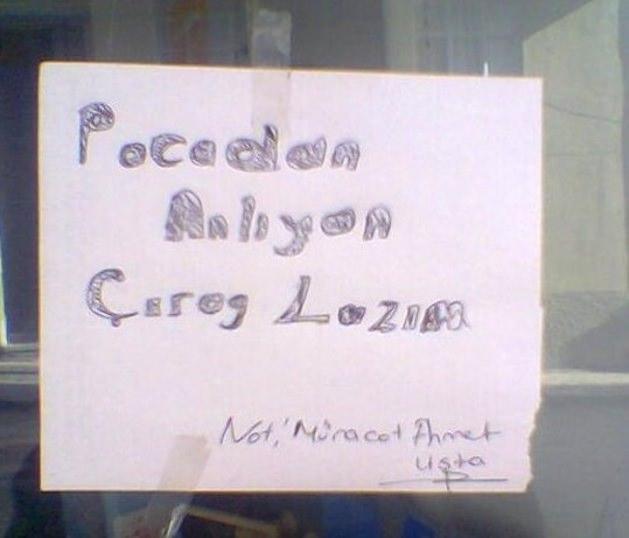 Pocadan
Anlıyon
Çırag Lazım
Not,' Müracat Ahmet
usta